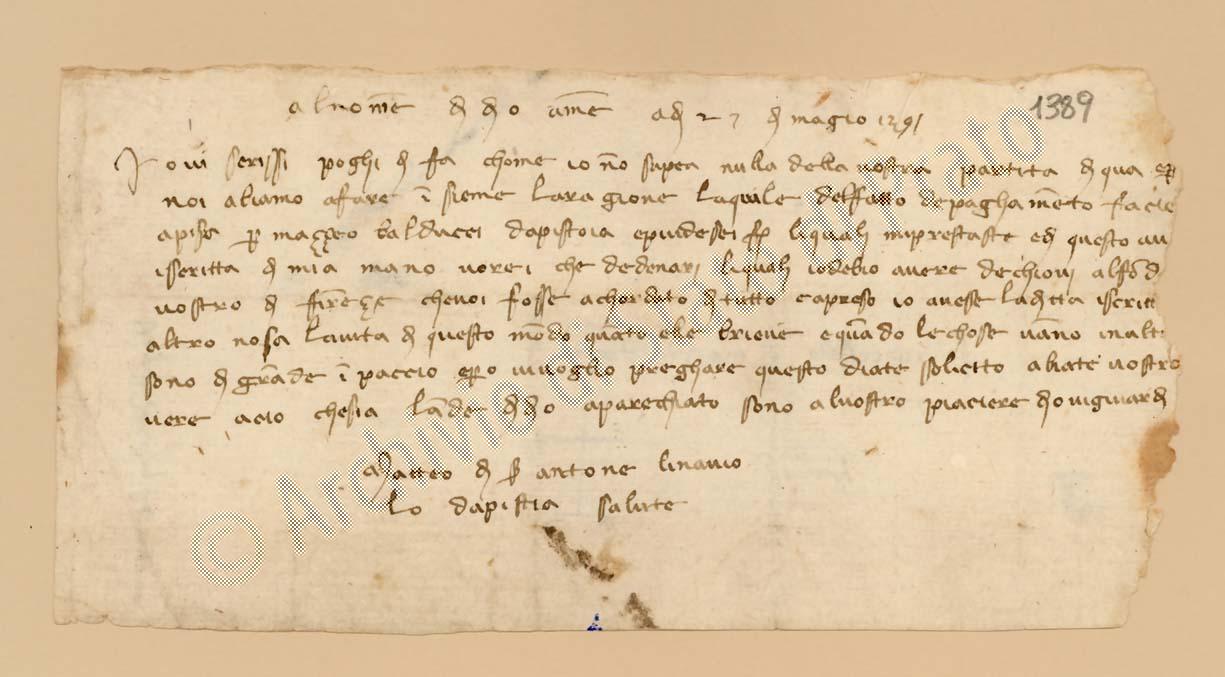 al nome di dio ame adi 27 di magio 1391
1389
Io vi scrissi poghi di fa chome io no sapea nulla della vostra partita di qua e p
noi abiamo a fare i sieme la ragione la quale del fatto de paghamento facie
a pisa p mazzeo balducci da pistoia e pui de sei f li quali mi prestaste e di questo av
iscritta di mia mano vorei che de denari li quali io debio avere de chiovi al fo d
vostro di firenze che voi fosse achordato di tutto e apreso io avesse la ditta iscritt
altro no sa la vita di questo modo quato ele brieve e quado le chose vano in alt
sono di grade i paccio e po vi voglio preghare questo diate solicito abiate vostro
vere acio che sia lade di dio aparechiato sono al vostro piaciere dio vi guardi
Matteo di s antone
lo da pistia salute
© Archivio di Stato di Prato